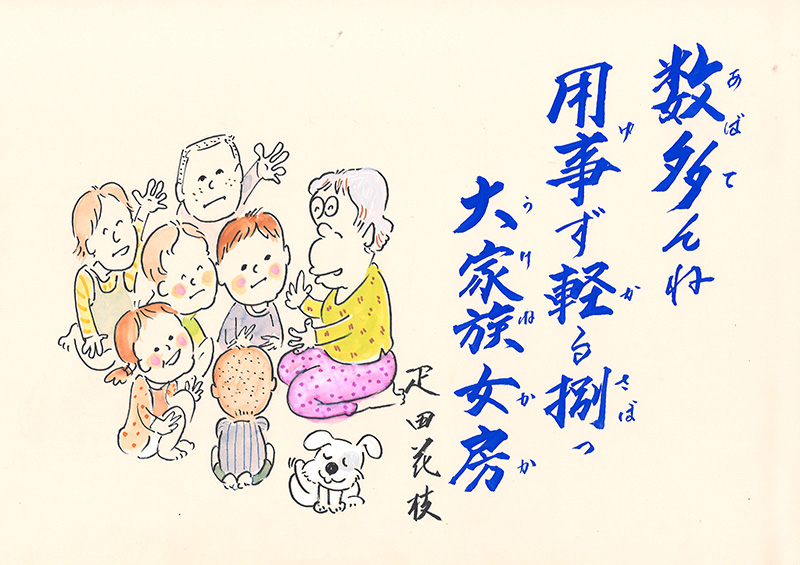 数多んね
あばて
用事ず軽る捌っ
ゆ か さば
大家族女房
うけねかか
疋田花枝